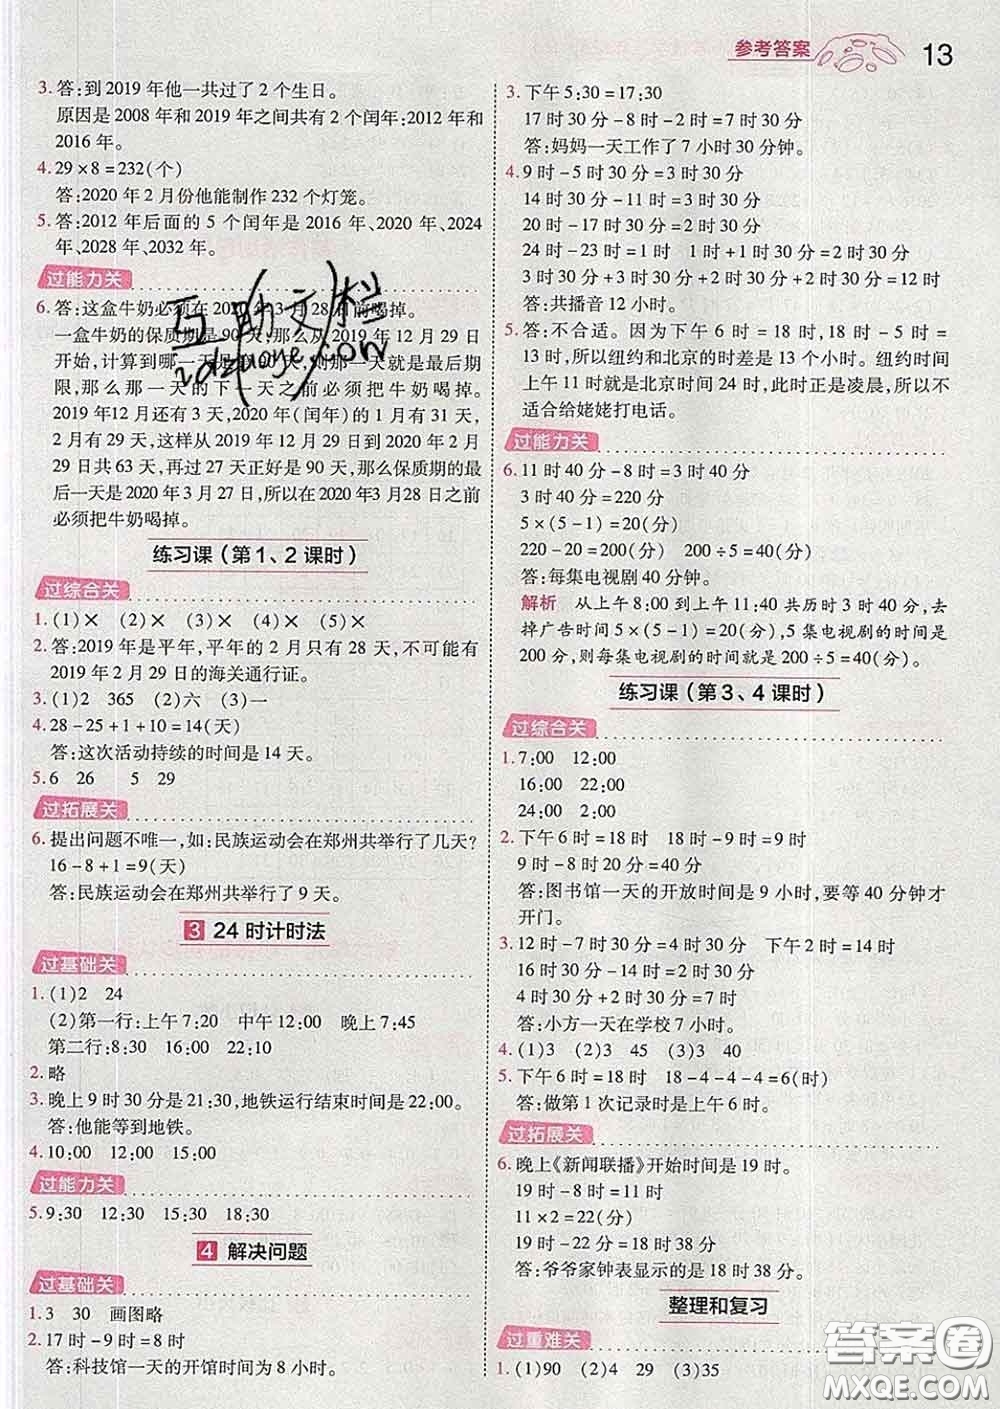 参考答案 13
3.答:到 2019 年他一共过了 2 个生日。
原因是 2008 年和 2019 年之间共有 2 个闰年:2012 年和
2016 年。
4.29×8=232(个)
答:2020 年 2 月份他能制作 232 个灯笼。
5.答:2012 年后面的 5 个闰年是 2016 年、2020 年、2024
年、2028 年、2032 年。
过能力关
6.答:这盒牛奶必须在 2020 年 3 月 28 日前喝掉。
一盒牛奶的保质期是 90 天,那么从 2019 年 12 月 29 日
开始,计算到哪一天是 90 天,则那一天就是最后期
限,那么那一天的下一天之前必须把牛奶喝掉。
2019 年12 月还有 3 天,2020 年(闰年)的 1 月有 31 天,
2 月有 29 天,这样从 2019 年 12 月 29 日到 2020 年 2 月
29 日共 63 天,再过 27 天正好是 90 天,那么保质期的最
后一天是 2020 年 3 月 27 日,所以在 2020年3 月28 日之前
必须把牛奶喝掉。
练习课(第 1、2 课时)
过综合关
1.(1)× (2)× (3)× (4)× (5)×
2.答:2019 年是平年,平年的 2 月只有 28 天,不可能有
2019 年 2 月 29 日的海关通行证。
3.(1)2 365 (2)六 (3)一
4.28-25+1+10=14(天)
答:这次活动持续的时间是 14 天。
5.6 26 5 29
过拓展关
6.提出问题不唯一,如:民族运动会在郑州共举行了几天?
16-8+1=9(天)
答:民族运动会在郑州共举行了 9 天。
3 24 时计时法
过基础关
1.(1)2 24
(2)第一行:上午 7:20 中午 12:00 晚上 7:45
第二行:8:30 16:00 22:10
2.略
3.晚上 9 时 30 分是 21:30,地铁运行结束时间是 22:00。
答:他能等到地铁。
4.10:00 12:00 15:00
过能力关
5.9:30 12:30 15:30 18:30
4 解决问题
过基础关
1.3 30 画图略
2.17 时-9 时=8 时
答:科技馆一天的开馆时间为 8 小时。
3.下午 5:30=17:30
17 时 30 分-8 时-2 时=7 时 30 分
答:妈妈一天工作了 7 小时 30 分钟。
4.9 时-5 时 30 分=3 时 30 分
14 时 30 分-11 时=3 时 30 分
20 时-17 时 30 分=2 时 30 分
24 时-23 时=1 时 1 时+1 时 30 分=2 时 30 分
3 时 30 分+3 时 30 分+2 时 30 分+2 时 30 分=12 时
答:共播音 12 小时。
5.答:不合适。因为下午 6 时=18 时,18 时-5 时=
13 时,所以纽约和北京的时差是 13 个小时。纽约时间
上午 11 时就是北京时间 24 时,此时正是凌晨,所以不
适合给姥姥打电话。
过能力关
6.11 时 40 分-8 时=3 时 40 分
3 时 40 分=220 分
5×(5-1)=20(分)
220-20=200(分) 200÷5=40(分)
答:每集电视剧 40 分钟。
解析 从上午 8:00 到上午 11:40 共历时 3 时 40 分,去
掉广告时间 5×(5-1)=20(分),5 集电视剧的时间是
200 分,则每集电视剧的时间就是 200÷5=40(分)。
练习课(第 3、4 课时)
过综合关
1.7:00 12:00
16:00 22:00
24:00 2:00
2.下午 6 时=18 时 18 时-9 时=9 时
9 时-8 时 20 分=40 分
答:图书馆一天的开放时间是 9 小时,要等 40 分钟才
开门。
3.12 时-7 时 30 分=4 时 30 分 下午 2 时=14 时
16 时 30 分-14 时=2 时 30 分
4 时 30 分+2 时 30 分=7 时
答:小方一天在学校 7 小时。
4.(1)3 (2)3 45 (3)3 40
5.下午 6 时=18 时 18-4-4-4=6(时)
答:做第 1 次记录时是上午 6 时。
过拓展关
6.晚上《新闻联播》开始时间是 19 时。
19 时-8 时=11 时
11×2=22(分)
19 时-22 分=18 时 38 分
答:爷爷家钟表显示的是 18 时 38 分。
整理和复习
过重难关
1.(1)90 (2)4 29 (3)35
答案圈
MXQE.COM